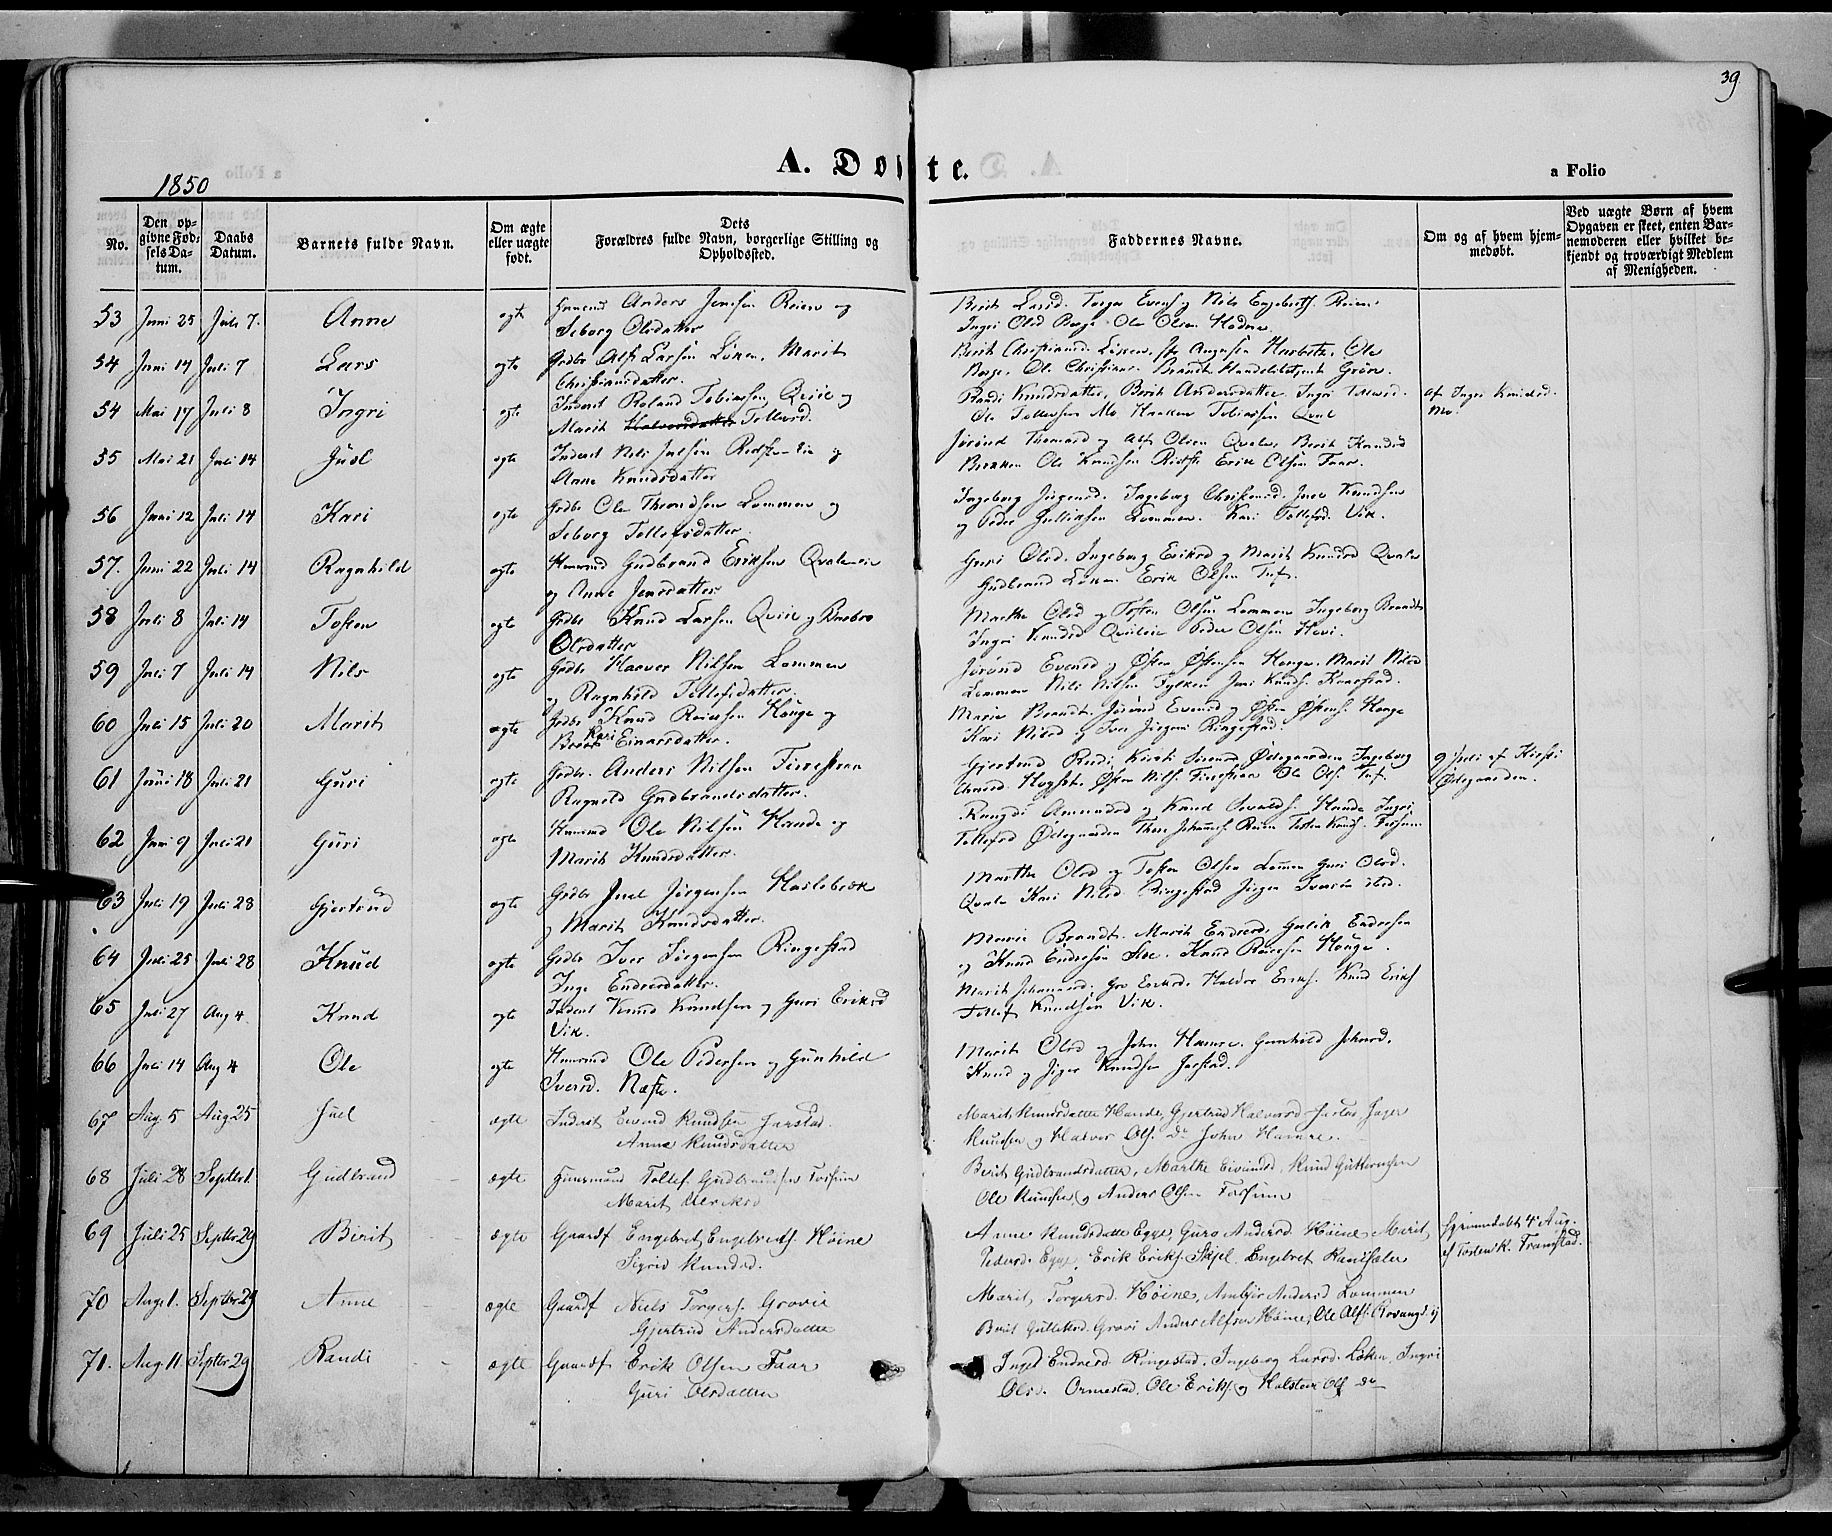 39
A. Døbte.
a Folio
1850
No.
Den op-
givne Fød-
sels Da-
tum.
Daabs
Datum.
Barnets fulde Navn.
Om ægte
eller uægte
født.
Dets
Forældres fulde Navn, borgerlige Stilling og
Opholdssted.
Faddernes Navne.
Om og af hvem hjem-
medøbt.
Ved uægte Børn af hvem
Opgaven er skeet, enten Bar-
nemoderen eller hvilket be-
kjendt og troværdigt Medlem
af Menigheden.
53 Juni 25 Juli 7. Anne egte Huusmd Anders Jensen Reien og
Seborg Olsdatter
Berit Larsd. Torger Evens og Nils Engebrets. Reien
Ingri Olsd Berge Ole Olsen Hodne
54 Juni 14 Juli 7 Lars egte Grdbr Alf Larsen Löken. Marit
Christiansdatter.
Berit Christiansd. Löken, Harbitz, Ole
Berge, Ole Christians. Brandt
54 Mai 17 Juli 8 Ingri egte Inderst Roland Tobiasen Qviie og
Marit Halvorsdatter Tollevsd.
Randi Knudsdatter, Berit Andersdatter Ingri Tollevsd.
Ole Tollevsen Mo Haaken Tobiassen Qvale
af Ingri Knudsd.
Mo.
55 Mai 21 Juli 14 Juul egte Inderst Nils Julsen og
Anne Knudsdatter
Jörend Thomasd og Alf Olsen Qvale, Berit Knudsd
Brekken Ole Knudsen Erik Olsen Faar.
56 Juni 12 Juli 14 Kari egte Grdbr Ole Throndsen Lommen og
Seborg Tollefsdatter.
Ingeborg Jörgensd. Ingeborg Christensd. Juel Knudsen
og Peder Gulliksen Lommen. Kari Tollefsd. Vik.
57. Juni 22 Juli 14 Ragnhild egte Huusmd Gudbrand Eriksen Qvaleeie
og Anne Jensdatter
Guri Olsd. Ingeborg Eriksd og Marit Knudsd Qvale
Gudbrand Löken Erik Olsen Tuf.
58 Juli 8 Juli 14 Tosten egte Grdbr Knud Larsen Qviie og Barbro
Olsdatter
Marthe Olsd og Tosten Olsen Lommen Ingeborg Brandt
Ingri Knudsd Qvileie Peder Olsen Hovi.
59 Juli 7 Juli 14 Nils egte Grdbr Haaver Nilsen Lommen
og Ragnhild Tollefsdatter.
Jörand Evensd og Østen Østensen Hauge. Marit Nilsd
Lommen Nils Nilsen Fylken Jens Knuds.
60 Juli 15 Juli 20 Marit ægte Grdbr Knud Reiersen Hauge og
Kari Einarsdatter.
Marie Brandt. Jörand Evensd og Østen Østens. Hauge
Kari Nilsd og Iver Jörgens Ringestad.
61 Juni 18 Juli 21 Guri egte Grdbr. Anders Nilsen Finestran
Ragnild Gudbrandsdatter.
Gjertrud Kirsti Iversd Ødegaarden Ingeborg
Østen Nils. Finestran Ole Ols. Tuf.
9 Juli af Kirsti
Ødegaarden.
62 Juni 9 Juli 21 Guri egte Huusmd Ole Nilsen Hande og
Marit Knudsdatter.
Rangdi Amundsd og Knud Hande Ingri
Tollefsd Ødegaarden Thore Johannes Reien Tosten Knuds. Fossum
63 Juli 19 Juli 28 Gjertrud egte Grdbr Juel Jörgensen Haslebræk
og Marit Knudsdatter.
Marthe Olsd og Tosten Olsen Lommen Guri Olsd.
Qvale Kari Nilsd Ringestad Jörgen Iversen ibd.
64 Juli 25 Juli 28 Knud egte Grdbr Iver Jörgensen Ringestad
Inge Endresdatter.
Marie Brandt. Marit Endresd. Gulik Endresen
og Knud Endresen Knud Reiersen Hauge.
65 Juli 27 Aug 4. Knud egte Inderst Knud Knudsen og Guri Eriksd
Vik.
Marit Gro Eriksd. Haldor Eriks. Knud Eriks
Tollef Knudsen Vik.
66 Juli 14 Aug 4 Ole egte Huusmd Ole Pedersen og Gunhild
Iversd. Næste.
Marit Olsd og John Hamre. Gunhild Johnsd.
Knud og Jöger Knudsen Jarstad.
67 Aug. 5 Aug. 25 Juel ægte Inderst Eivind Knudsen Jarstad.
Anne Knudsdatter
Marit Knudsdatter Hande, Gjertrud Halvorsd Jarstad, Jöger
Knudsen og Halvor Ols. Do John Hamre.
68 Juli 28 Septbr 1. Gudbrand ægte Huusmand Tollef Gudbrandsen Fossum
Marit Ulriksd
Berit Gudbrandsdatter, Marthe Eivindsd, Knud Guttormsen
Ole Knudsen og Anders Olsen Fossum
69 Juli 25 Septbr 29 Birit ægte Gaardf Engebret Engebrets. Höine
Sigrid Knudsd.
Anne Knudsdatte Egge, Guro Andersd. Höine, Marit
Pedersd. Egge, Erik Eriks. Skjel, Engebret
Hjemmedøbt 4 Aug.
af Tosten K. Framstad.
70 Aug. 1. Septbr 29 Anne ægte Gaardf Niels Torgers. Grovie
Gjertrud Andersdatter
Marit Torgersd. Höine, Ambjør Andersd Lommen
Berit Gulliksd. Grovi Anders Alfsen Höine, Ole Alfs.
71. Aug. 11. Septbr 29 Randi ægte Gaardf Erik Olsen Faar
Guri Olsdatter
Inged Endresd. Ringestad, Ingeborg Larsd. Løken, Ingri
Olsd. Ormestad, Ole Eriks. og Halsten Ols. Do